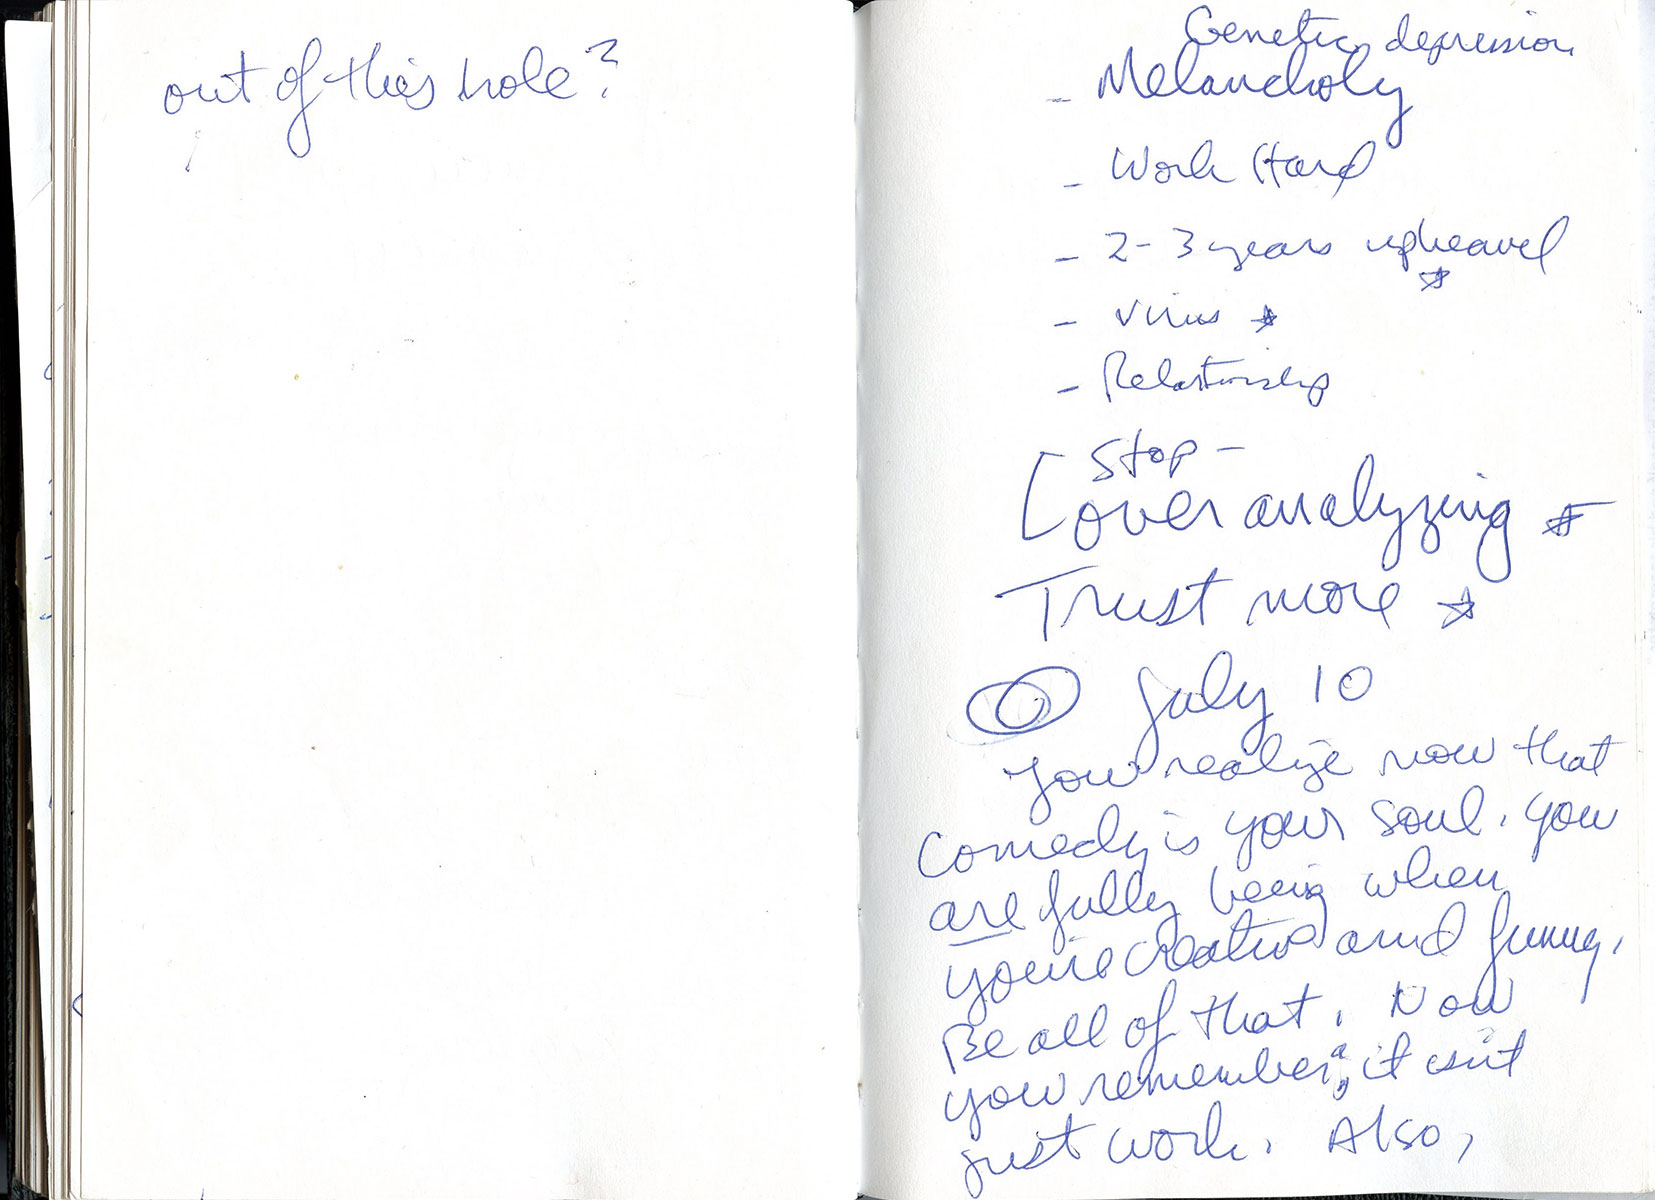 out of this hole?
Genetic, depression
- Melancholy
- Work Hard
- 2-3 years upheavel
- Virus
- Relationship
Stop -
[overanalyzing
Trust more
July 10
You realize now that
Comedy is your soul. You
are fully being when
you're creative and funny.
Be all of that. Now
you remember; it isn't
just work. Also,